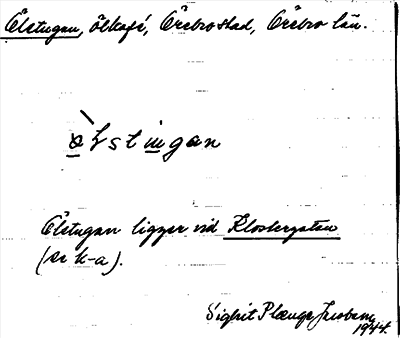 Ölstugan, ölkafé, Örebro stad, Örebro län.
ø̀lstugan
Ölstugan ligger vid Klostergatan
(se k-a).
Sigbrit Plænge Jacobson
1944.